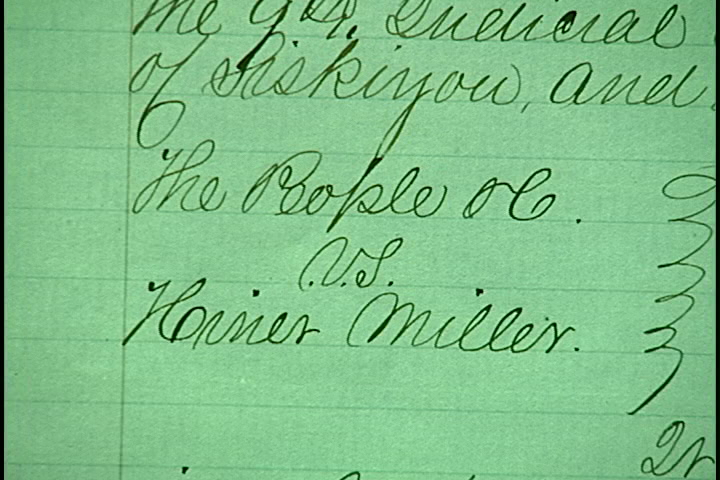 the 9th. Judicial
of Siskiyou, and
The People &C.
.V.S.
Hiner Miller.